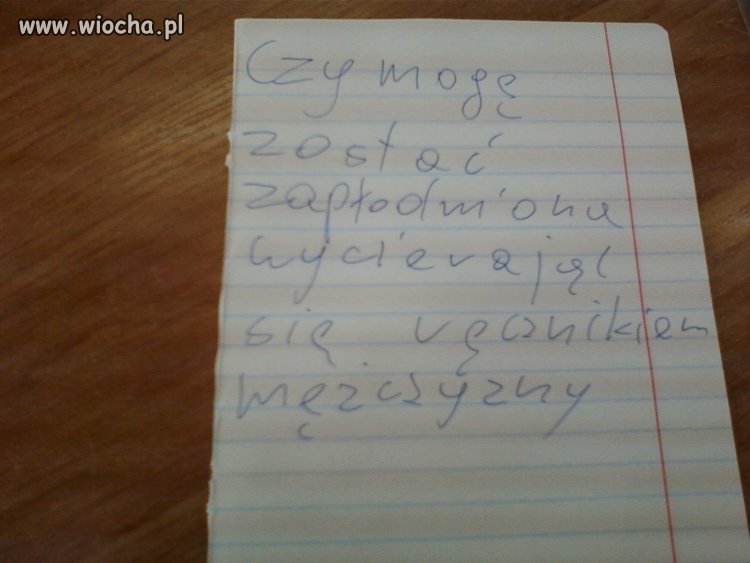 www.wiocha.pl
Czy mogę
zostać
zapłodniona
wycierając
się ręcznikiem
mężczyzny